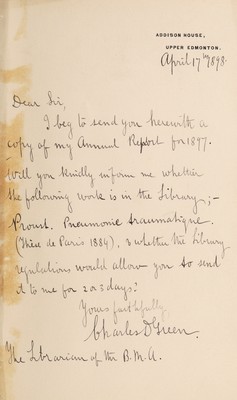 ADDISON HOUSE,
UPPER EDMONTON.
April 17th 1898.
Dear Sir,
I beg to send you herewith a
copy of my Annual Report for 1897.
Will you kindly inform me whether
the following work is in the Library;-
Proust. Pneumonie traumatique.
(Thèse de Paris 1884), & whether the Library
regulations would allow you to send
it to me for 2 or 3 days?
Yours faithfully,
Charles D Green.
The Librarian of the B.M.A.